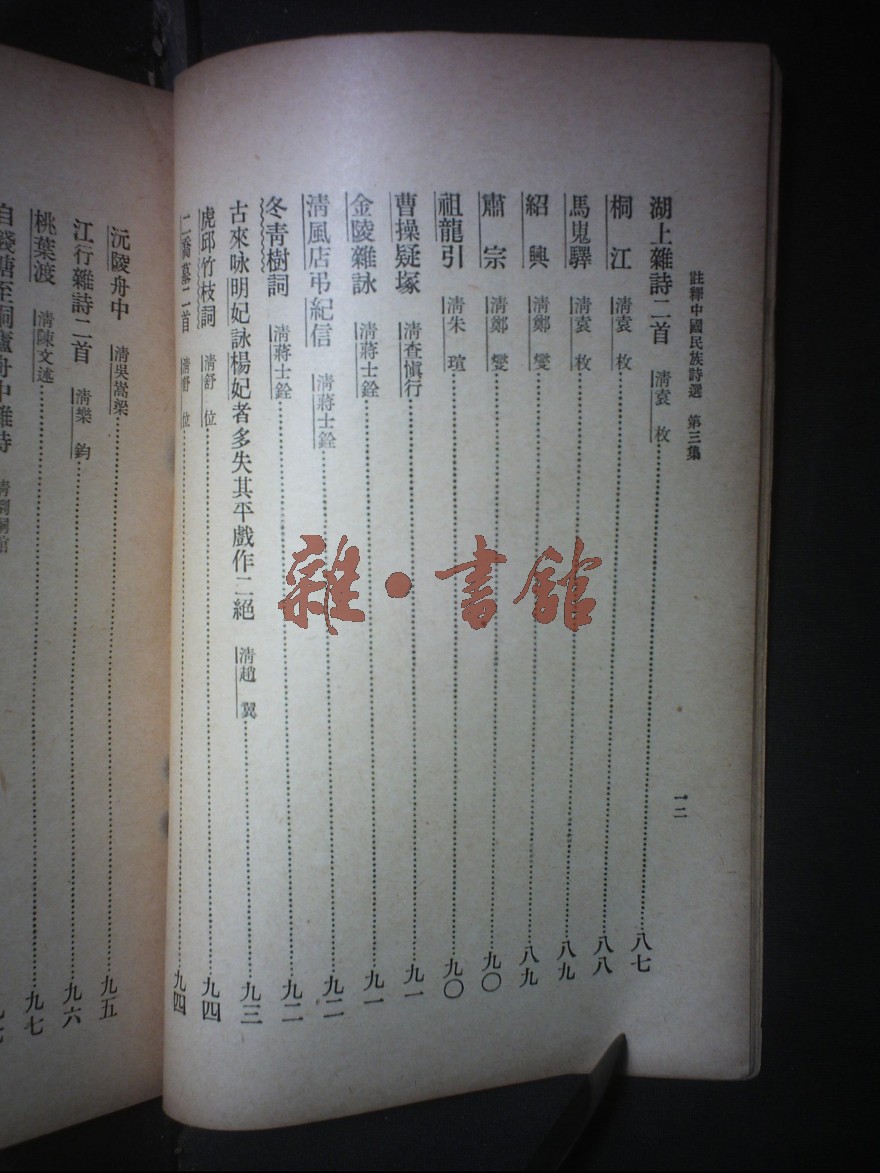 註釋中國民族詩選 第三集
一二
湖上雜詩二首 清袁枚 八七
桐江 清袁枚 八八
馬嵬驛 清袁枚 八九
紹興 清鄭燮 八九
肅宗 清鄭燮 九〇
祖龍引 清朱瑄 九〇
曹操疑塚 清查愼行 九一
金陵雜詠 清蔣士銓 九一
清風店弔紀信 清蔣士銓 九二
冬青樹詞 清蔣士銓 九二
古來咏明妃詠楊妃者多失其平戲作二絕 清趙翼 九三
虎邱竹枝詞 清舒位 九四
二喬墓二首 清舒位 九四
沅陵舟中 清吳嵩梁 九五
江行雜詩二首 清樂鈞 九六
桃葉渡 清陳文述 九七
自錢塘至桐廬舟中雜詩
雜·書館